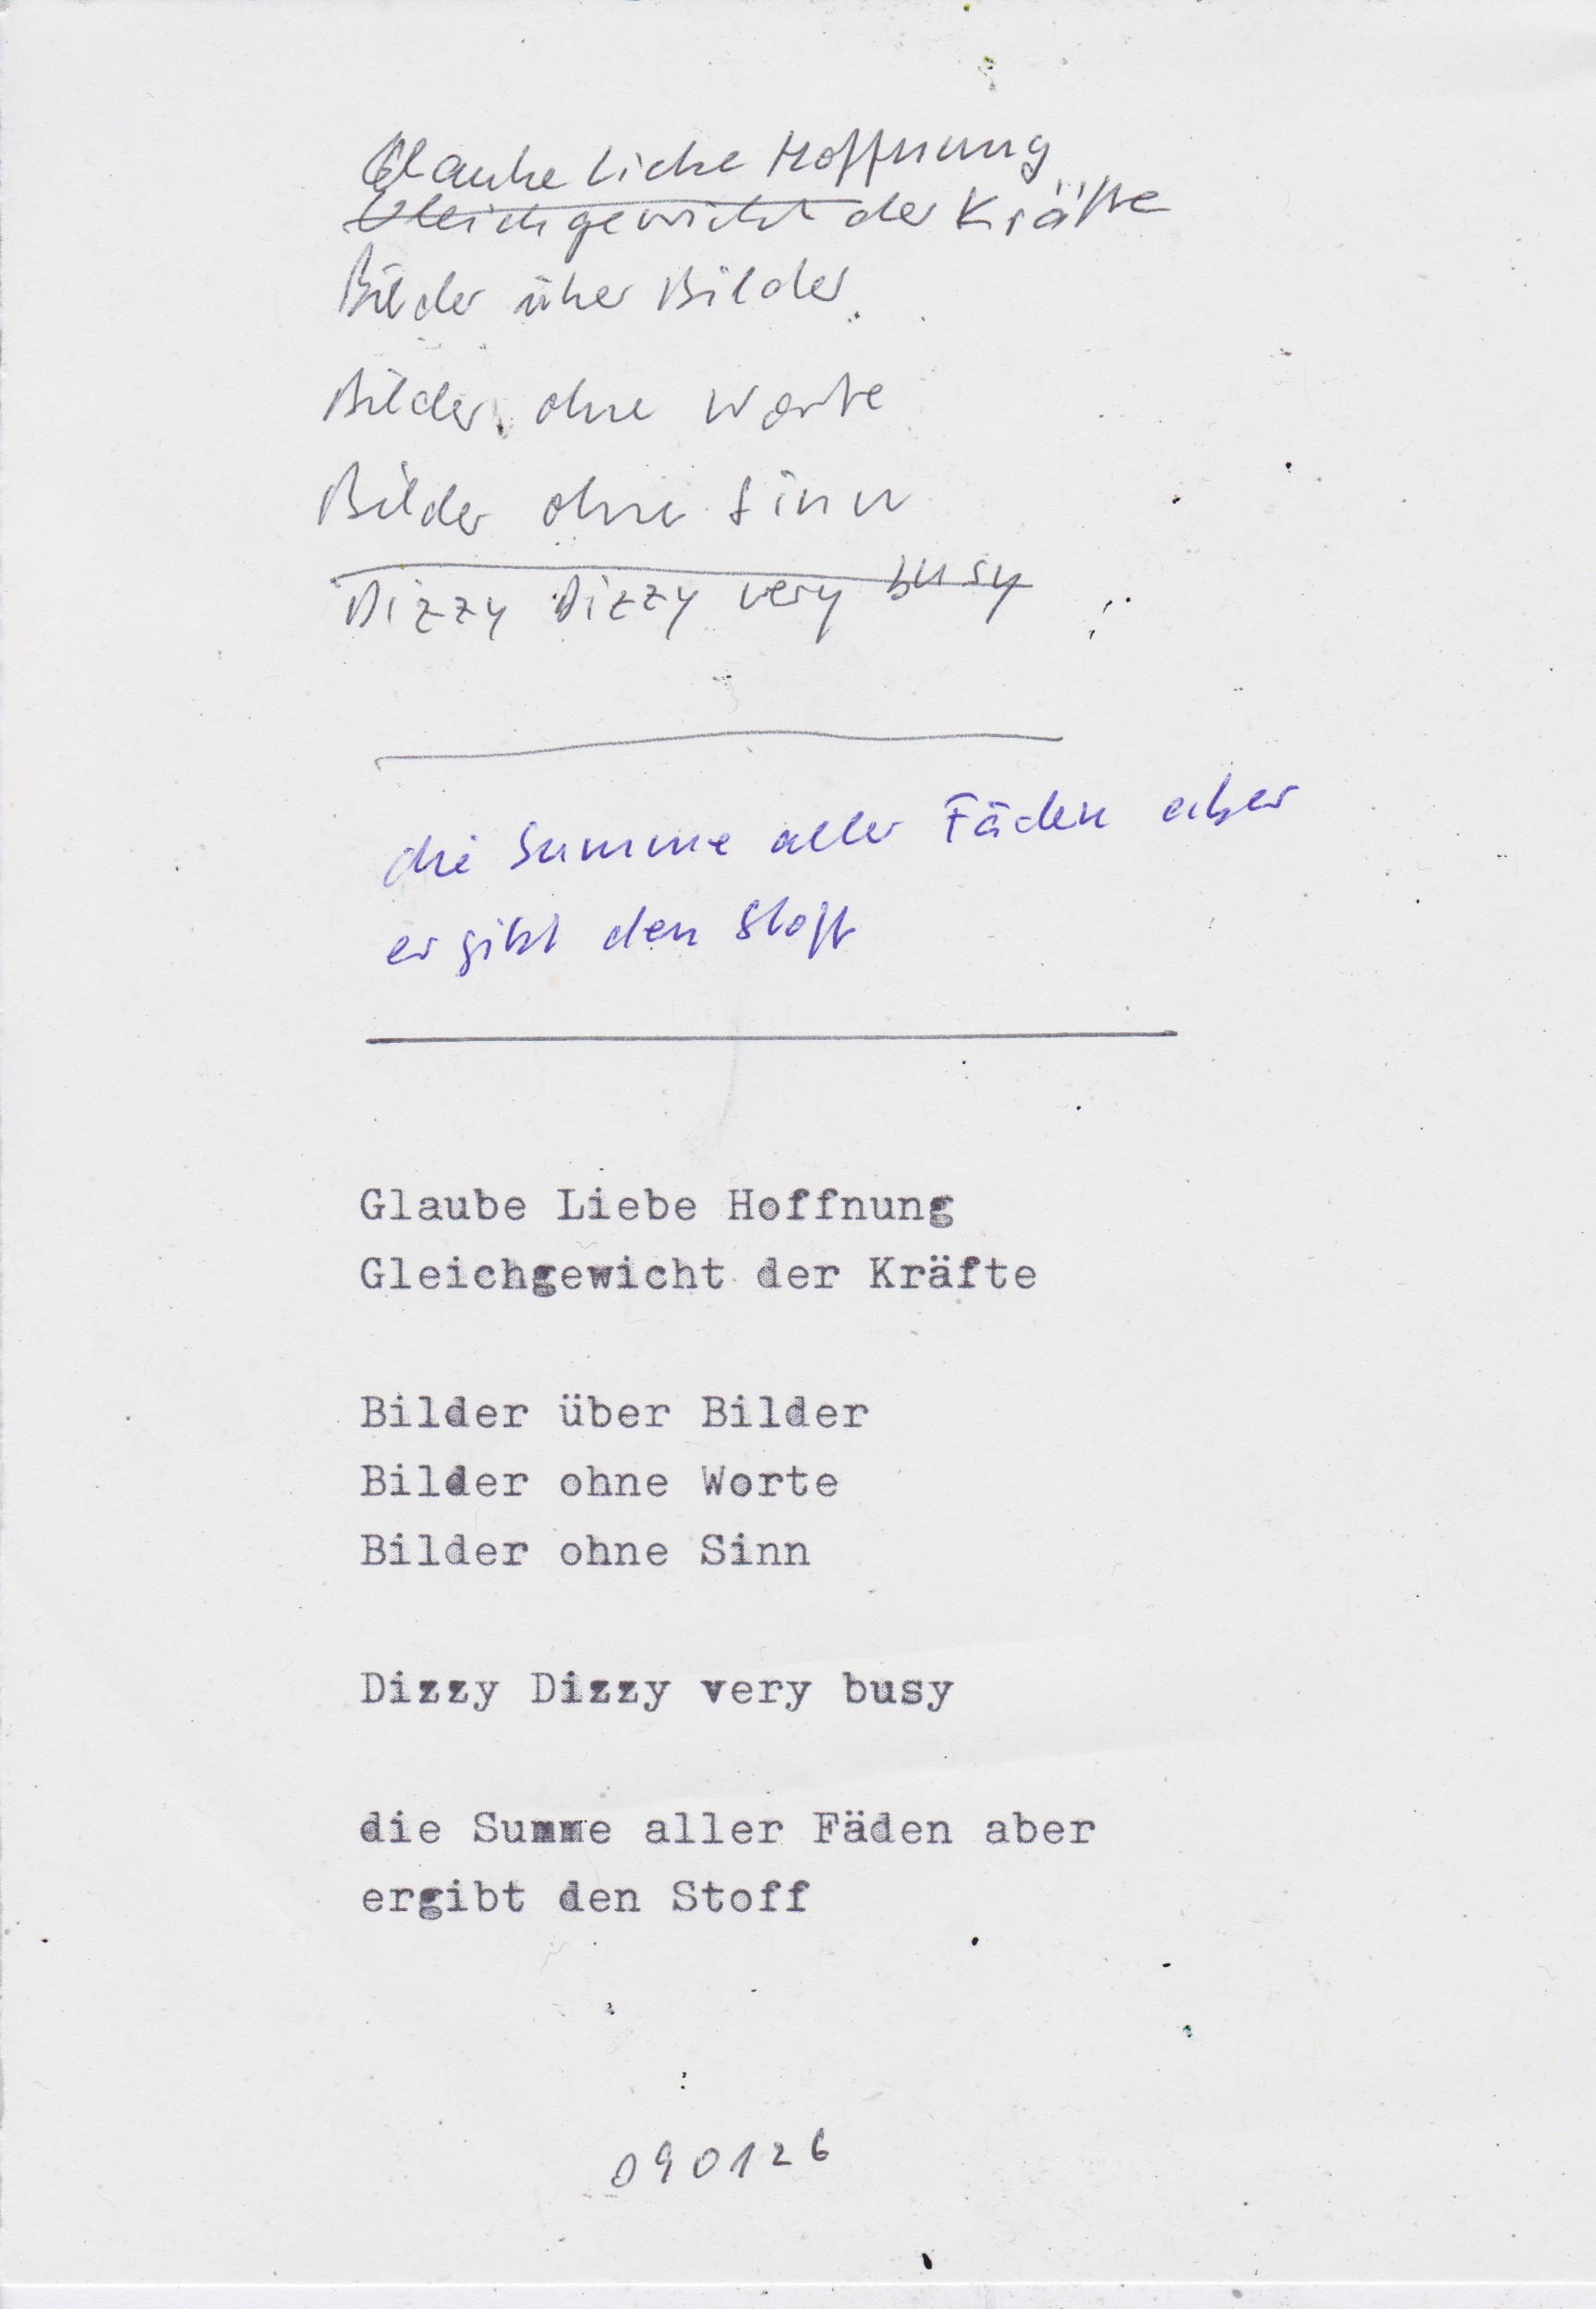 Glaube Liebe Hoffnung
Gleichgewicht der Kräfte
Bilder über Bilder
Bilder ohne Worte
Bilder ohne Sinn
Dizzy Dizzy very busy
die Summe aller Fäden aber
ergibt den Stoff
Glaube Liebe Hoffnung
Gleichgewicht der Kräfte
Bilder über Bilder
Bilder ohne Worte
Bilder ohne Sinn
Dizzy Dizzy very busy
die Summe aller Fäden aber
ergibt den Stoff
090126